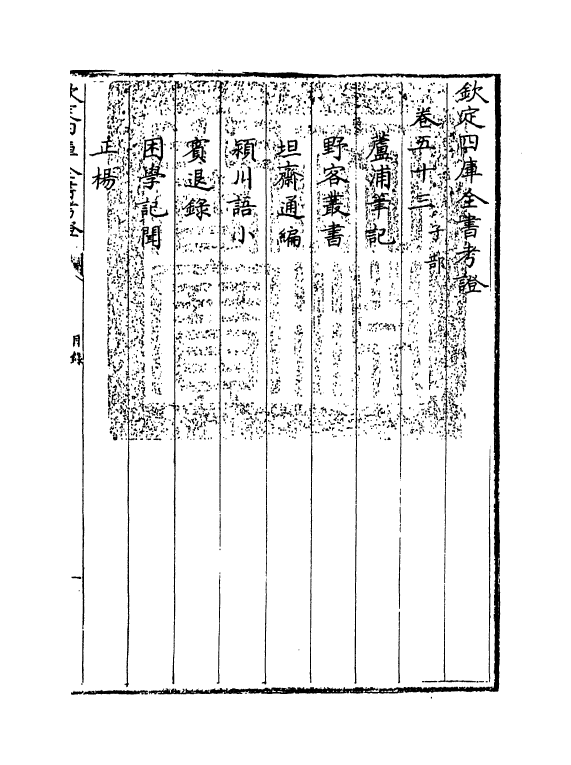 欽定四庫全書考證
卷五十三 子部
蘆浦筆記
野客叢書
坦齋通編
潁川語小
賓退錄
困學記聞
正楊
目錄
一